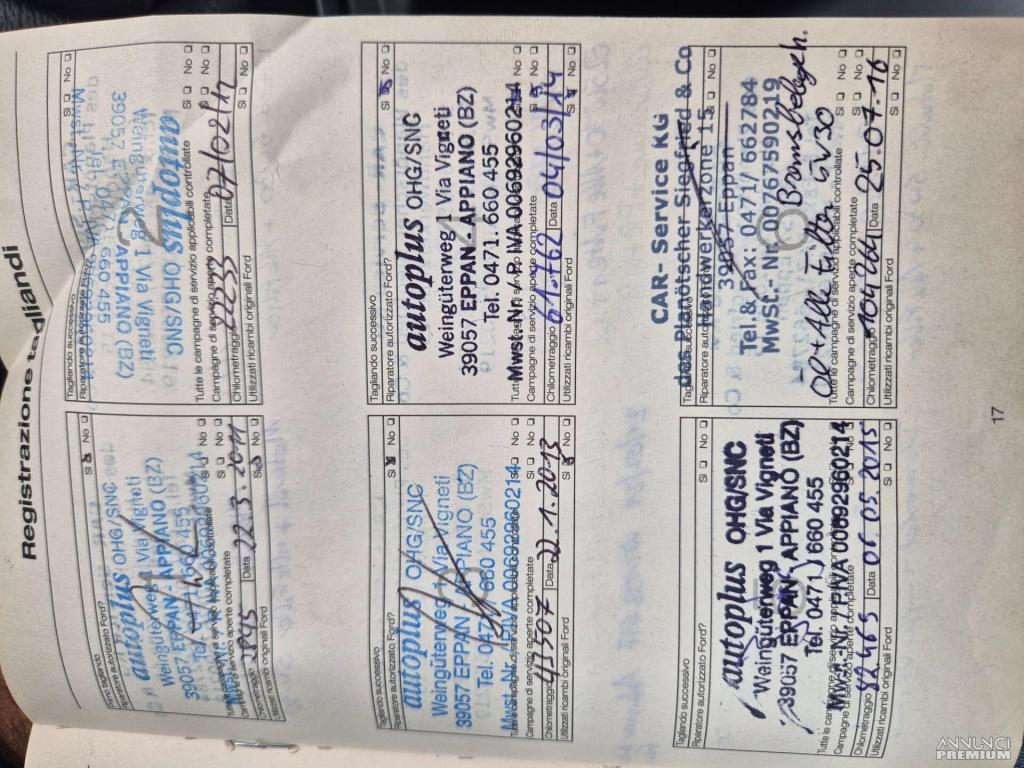 Registrazione tagliandi
Primo tagliando
Riparatore autorizzato Ford? Sì No
autoplus OHG/SNC
Weingüterweg 1 Via Vigneti
39057 EPPAN - APPIANO (BZ)
Data 22.3.2011
Utilizzati ricambi originali Ford Sì No
Tagliando successivo
Riparatore autorizzato Ford? Sì No
autoplus OHG/SNC
Weingüterweg 1 Via Vigneti
39057 EPPAN - APPIANO (BZ)
Tutte le campagne di servizio applicabili controllate Sì No
Campagne di servizio aperte completate Sì No
Chilometraggio Data 07/02/12
Utilizzati ricambi originali Ford Sì No
Tagliando successivo
Riparatore autorizzato Ford? Sì No
autoplus OHG/SNC
Weingüterweg 1 Via Vigneti
39057 EPPAN - APPIANO (BZ)
Tel. 0471 660 455
Mwst. Nr. P. IVA 00692960214
Tutte le campagne di servizio applicabili controllate Sì No
Campagne di servizio aperte completate Sì No
Chilometraggio 41507 Data 22.1.2013
Utilizzati ricambi originali Ford Sì No
Tagliando successivo
Riparatore autorizzato Ford? Sì No
autoplus OHG/SNC
Weingüterweg 1 Via Vigneti
39057 EPPAN - APPIANO (BZ)
Tel. 0471. 660 455
Mwst. Nr. P. IVA 00692960214
Campagne di servizio aperte completate Sì No
Chilometraggio 61.762 Data 04/03/14
Utilizzati ricambi originali Ford Sì No
Tagliando successivo
Riparatore autorizzato Ford? Sì No
autoplus OHG/SNC
Weingüterweg 1 Via Vigneti
39057 EPPAN - APPIANO (BZ)
Tel. 0471 660 455
Mwst.-Nr. P. IVA 00692960214
Campagne di servizio aperte completate
Chilometraggio 82.465 Data 06 05 2015
Utilizzati ricambi originali Ford
CAR- Service KG
des Planötscher Siegfried & Co
Tagliando successivo
Riparatore autorizzato Ford? Sì No
Handwerkerzone 15
39057 Eppan
Tel & Fax: 0471/ 662784
MwSt.- Nr. 00767590219
Öl + Alle Filter 5W30 Bremsbelage h.
Tutte le campagne di servizio applicabili controllate Sì No
Campagne di servizio aperte completate Sì No
Chilometraggio 104264 Data 25.07.16
Utilizzati ricambi originali Ford Sì No
17
ANNUNCI
PREMIUM